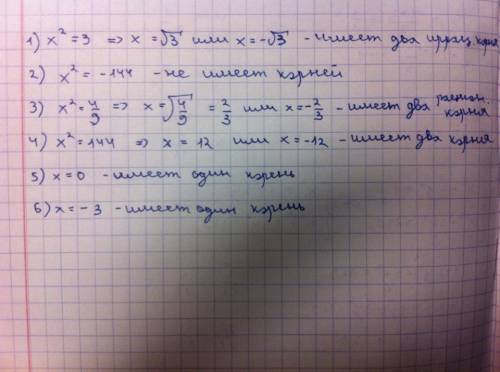 1) x² = 3 => x = √3 или x = -√3 - имеет два иррац. корня
2) x² = -144 - не имеет корней
3) x² = 4/9 => x = √4/9 = 2/3 или x = -2/3 - имеет два корня
4) x² = 144 => x = 12 или x = -12 - имеет два корня
5) x = 0 - имеет один корень
6) x = -3 - имеет один корень